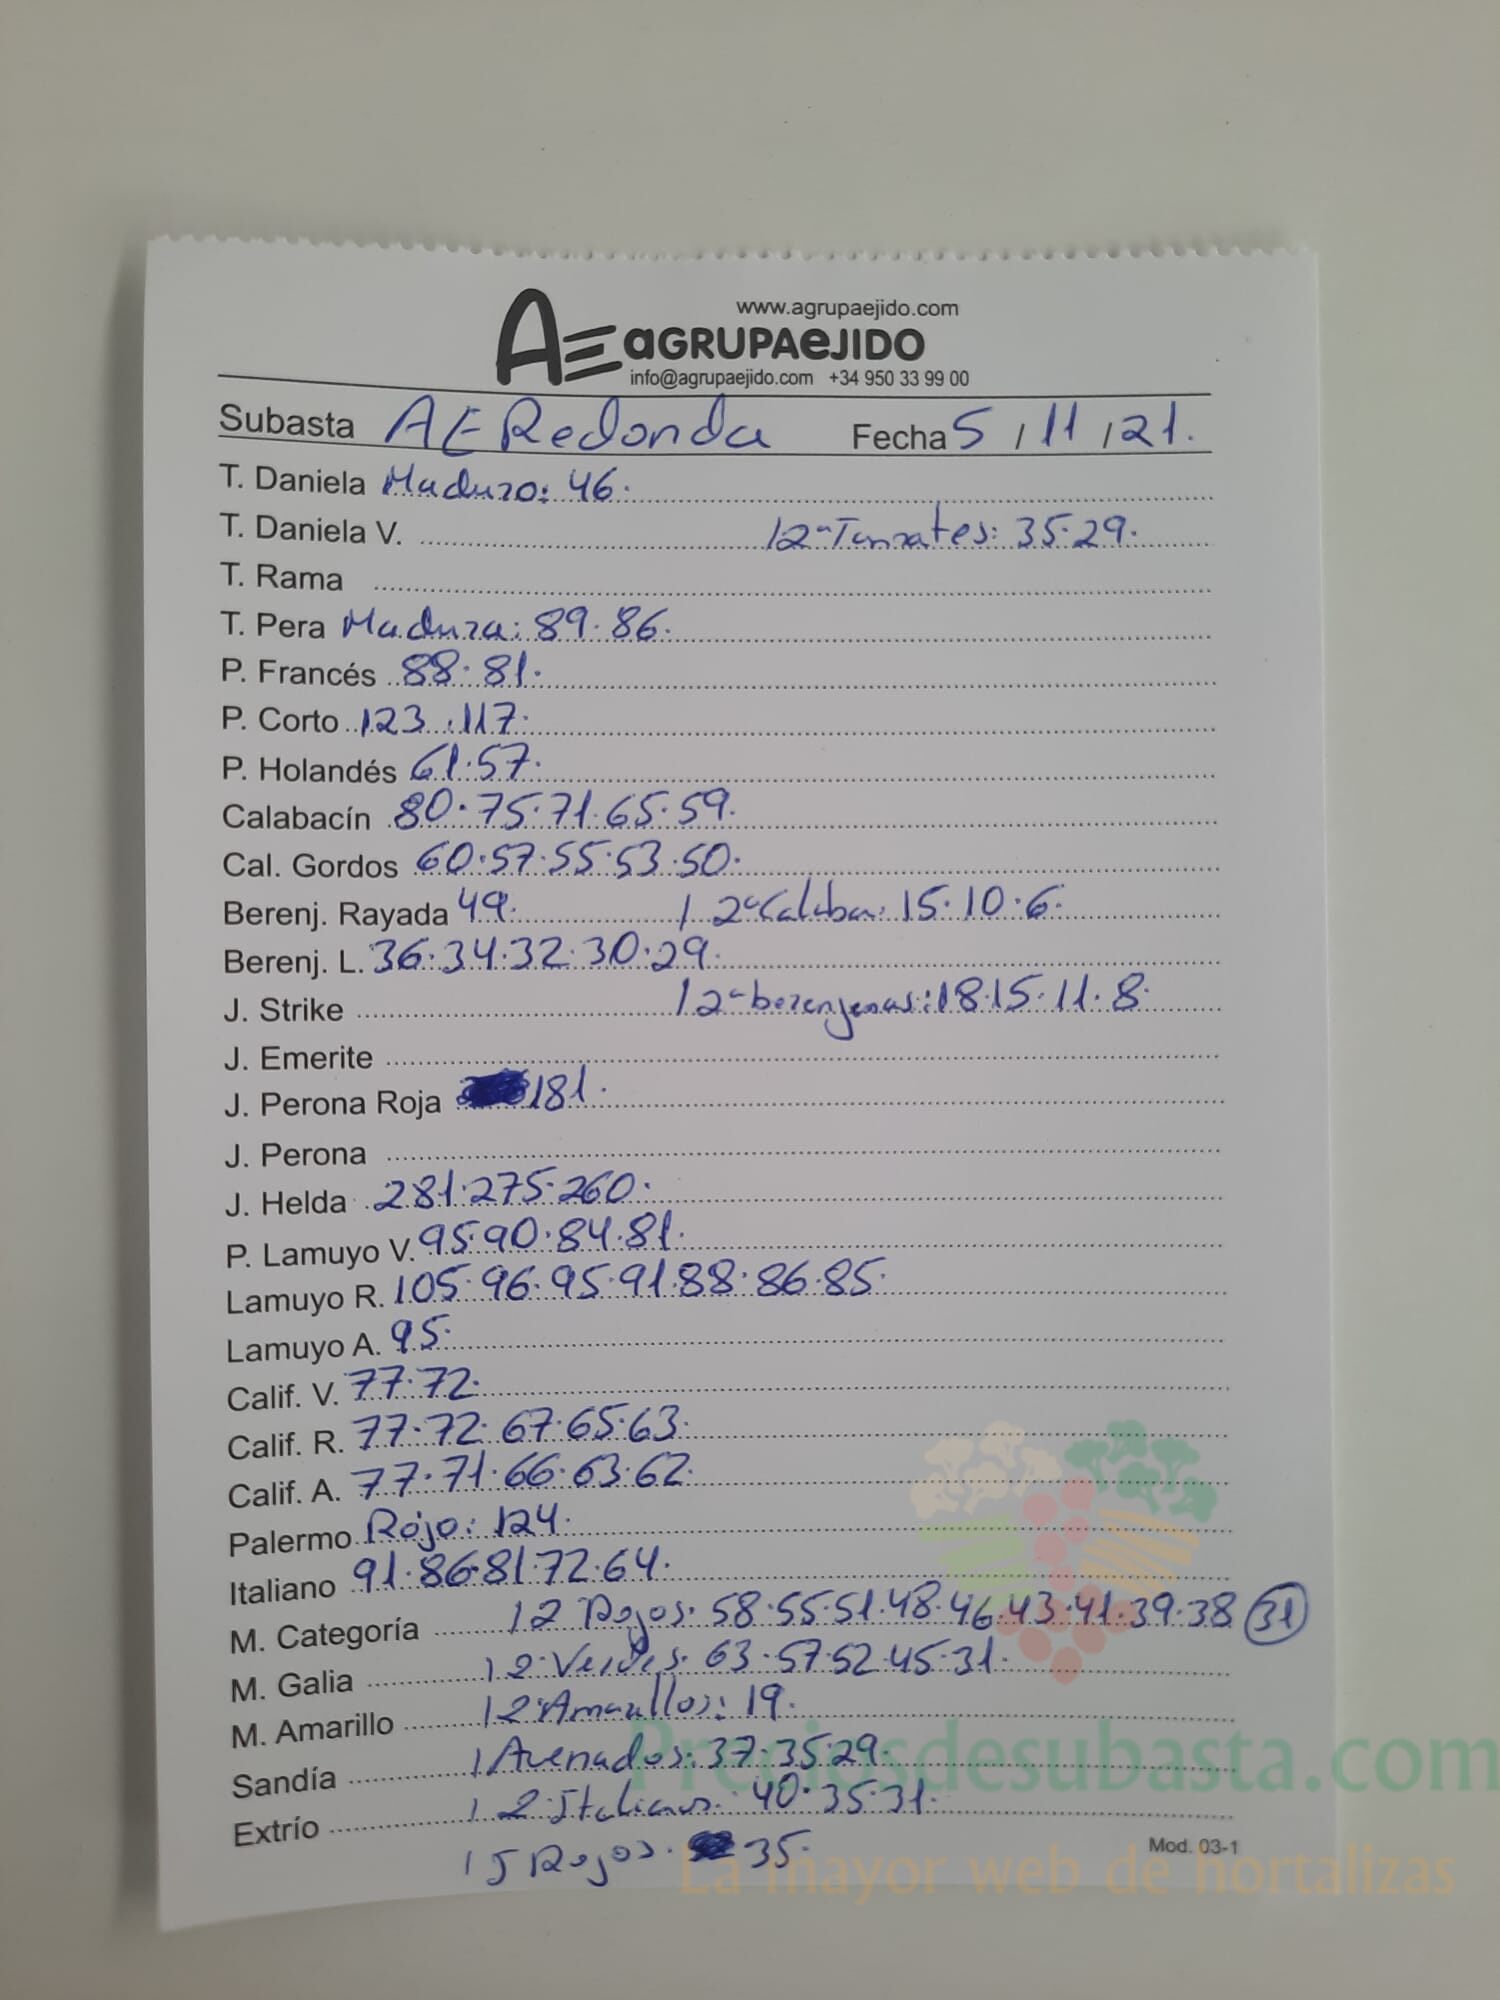 www.agrupaejido.com
AE aGRUPAeJIDO
info@agrupaejido.com +34 950 33 99 00
Subasta AE Redonda Fecha 5 / 11 / 21.
T. Daniela Maduro: 46.
T. Daniela V. / 2ª Tomates: 35.29.
T. Rama
T. Pera Madura: 89.86.
P. Francés 88.81.
P. Corto 123.117.
P. Holandés 61.57.
Calabacín 80.75.71.65.59.
Cal. Gordos 60.57.55.53.50.
Berenj. Rayada 49. / 2ª Calaba: 15.10.6.
Berenj. L. 36.34.32.30.29.
J. Strike / 2ª berenjenas: 18.15.11.8.
J. Emerite
J. Perona Roja 181.
J. Perona
J. Helda 281.275.260.
P. Lamuyo V. 95.90.84.81.
Lamuyo R. 105.96.95.91.88.86.85.
Lamuyo A. 95.
Calif. V. 77.72.
Calif. R. 77.72.67.65.63.
Calif. A. 77.71.66.63.62.
Palermo Rojo: 124.
Italiano 91.86.81.72.64.
M. Categoría / 2 Rojos. 58.55.51.48.46.43.41.39.38 31
M. Galia / 2 Verdes. 63.57.52.45.31.
M. Amarillo / 2 Amarillos: 19.
Sandía / Avenados: 37.35.29.
Extrío / 2 Italianos. 40.35.31.
/ J Rojos. 35.
Mod. 03-1
Preciosdesubasta.com
La mayor web de hortalizas